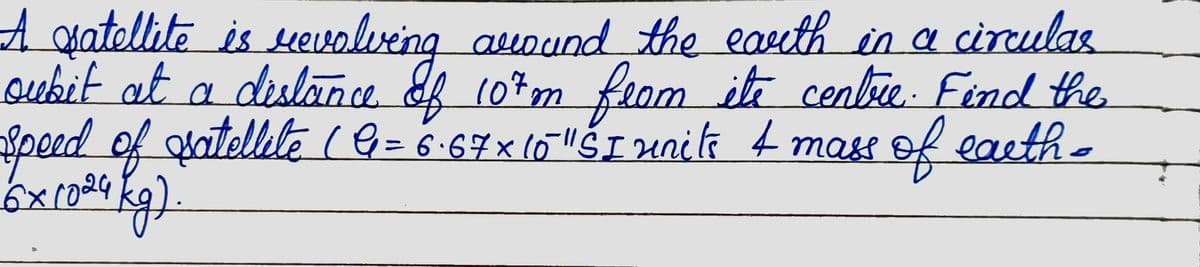 A satellite is revolving around the earth in a circular
orbit at a distance of 10⁷m from its centre. Find the
speed of satellite (G = 6.67×10⁻¹¹ SI units & mass of earth =
6×10²⁴ kg).